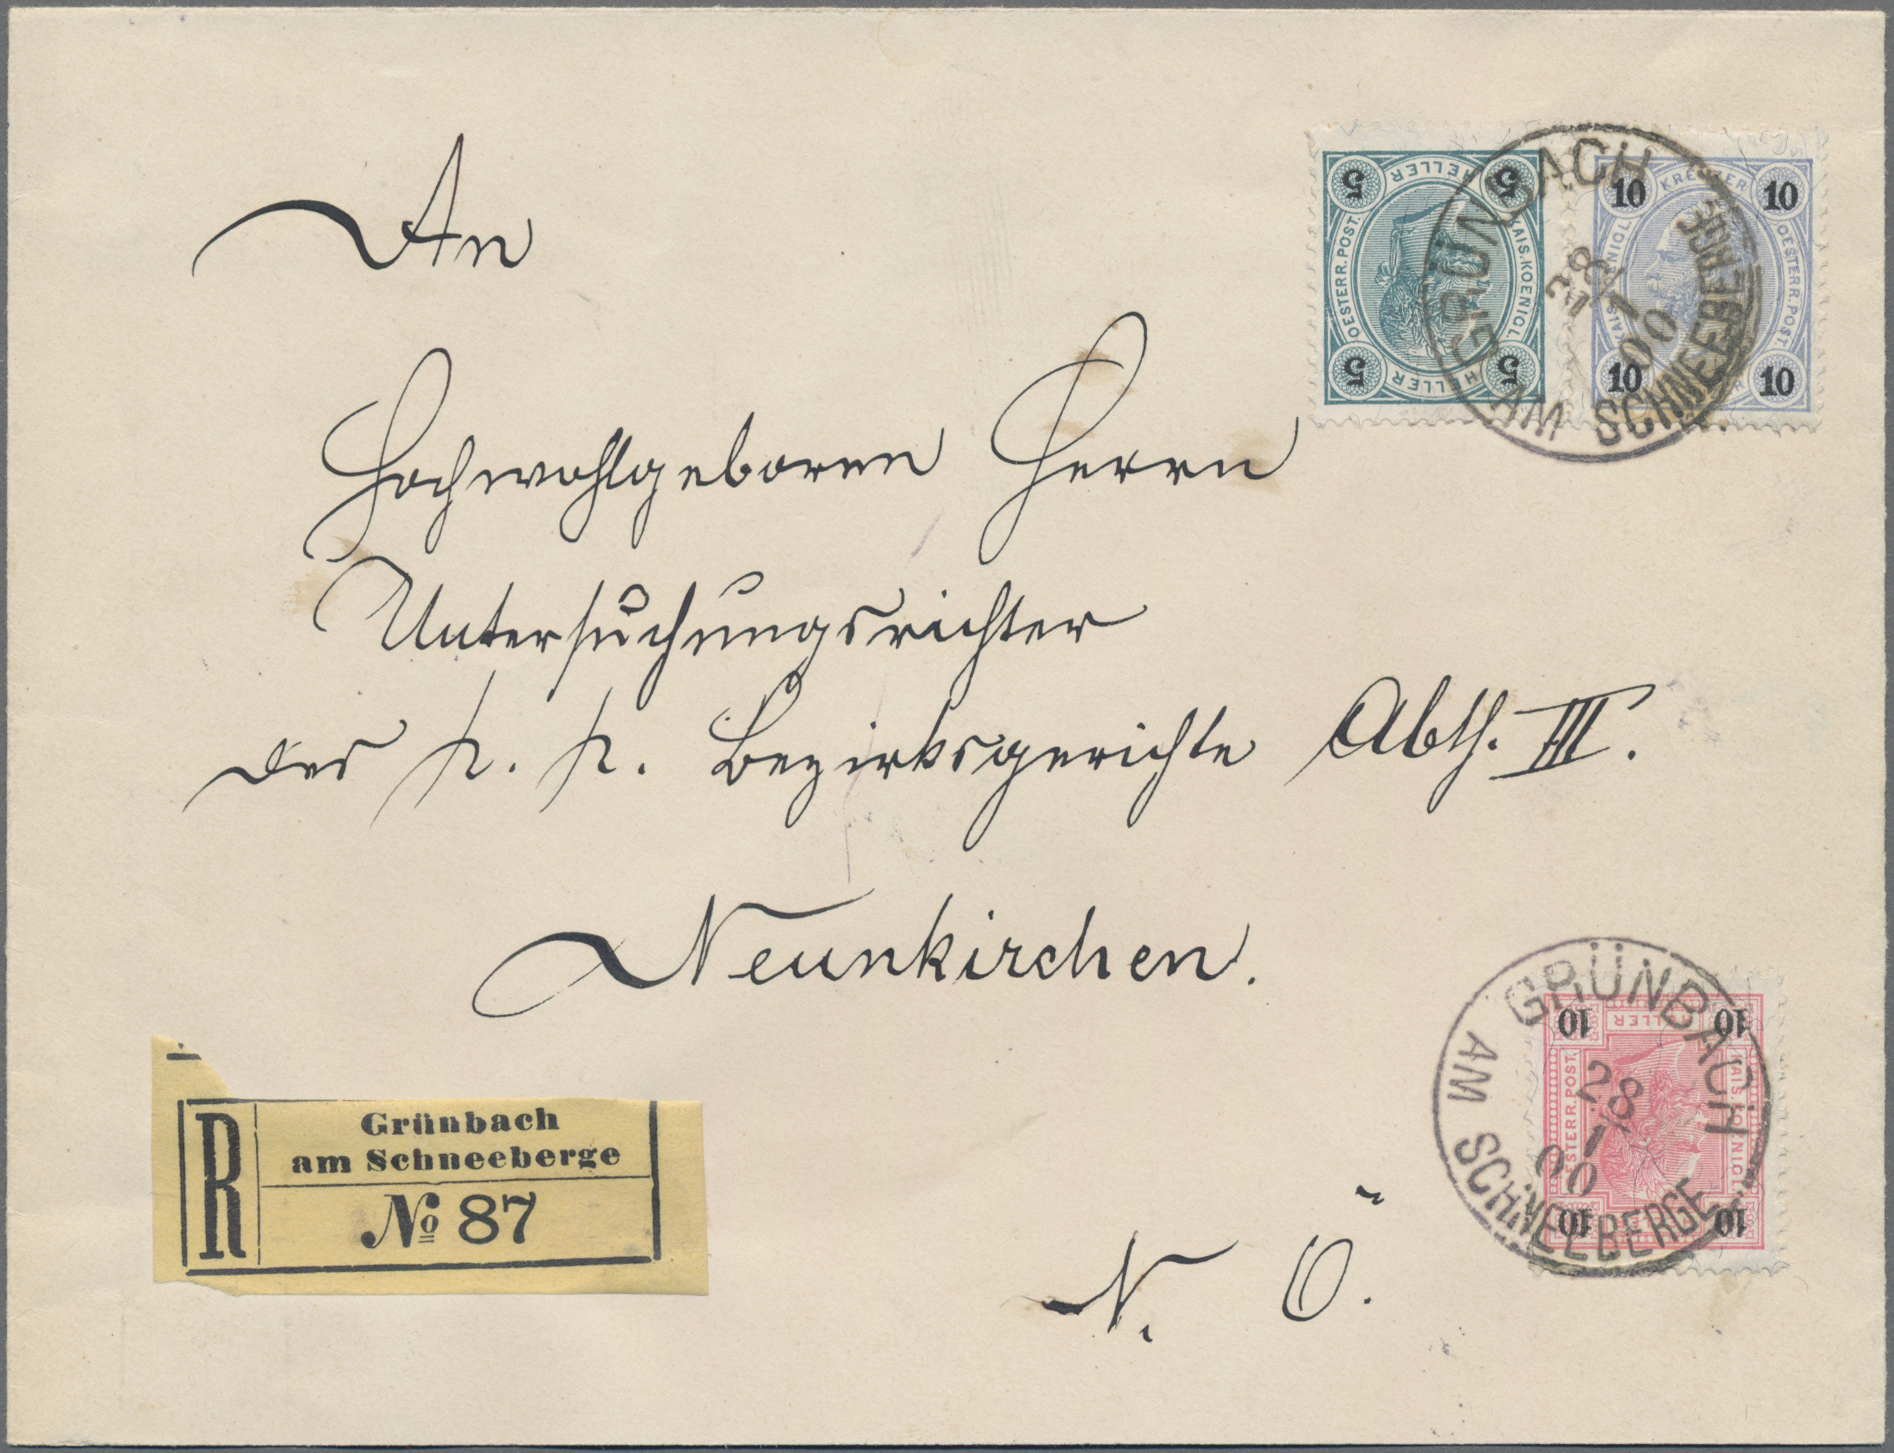 An
Hochwohlgeboren Herrn
Untersuchungsrichter
des k. k. Bezirksgerichte Abth. III.
Neunkirchen.
N. Ö.
5 HELLER 5
OESTERR. POST. KAIS. KOENIGL.
5 HELLER 5
10 KREUZER 10
KAIS. KOENIGL. OESTERR. POST.
10 10
GRÜNBACH
28
1
00
AM SCHNEEBERGE
R
Grünbach
am Schneeberge
No 87
10 HELLER 10
OESTERR. POST. KAIS. KOENIGL.
10 10
GRÜNBACH
28
1
00
AM SCHNEEBERGE